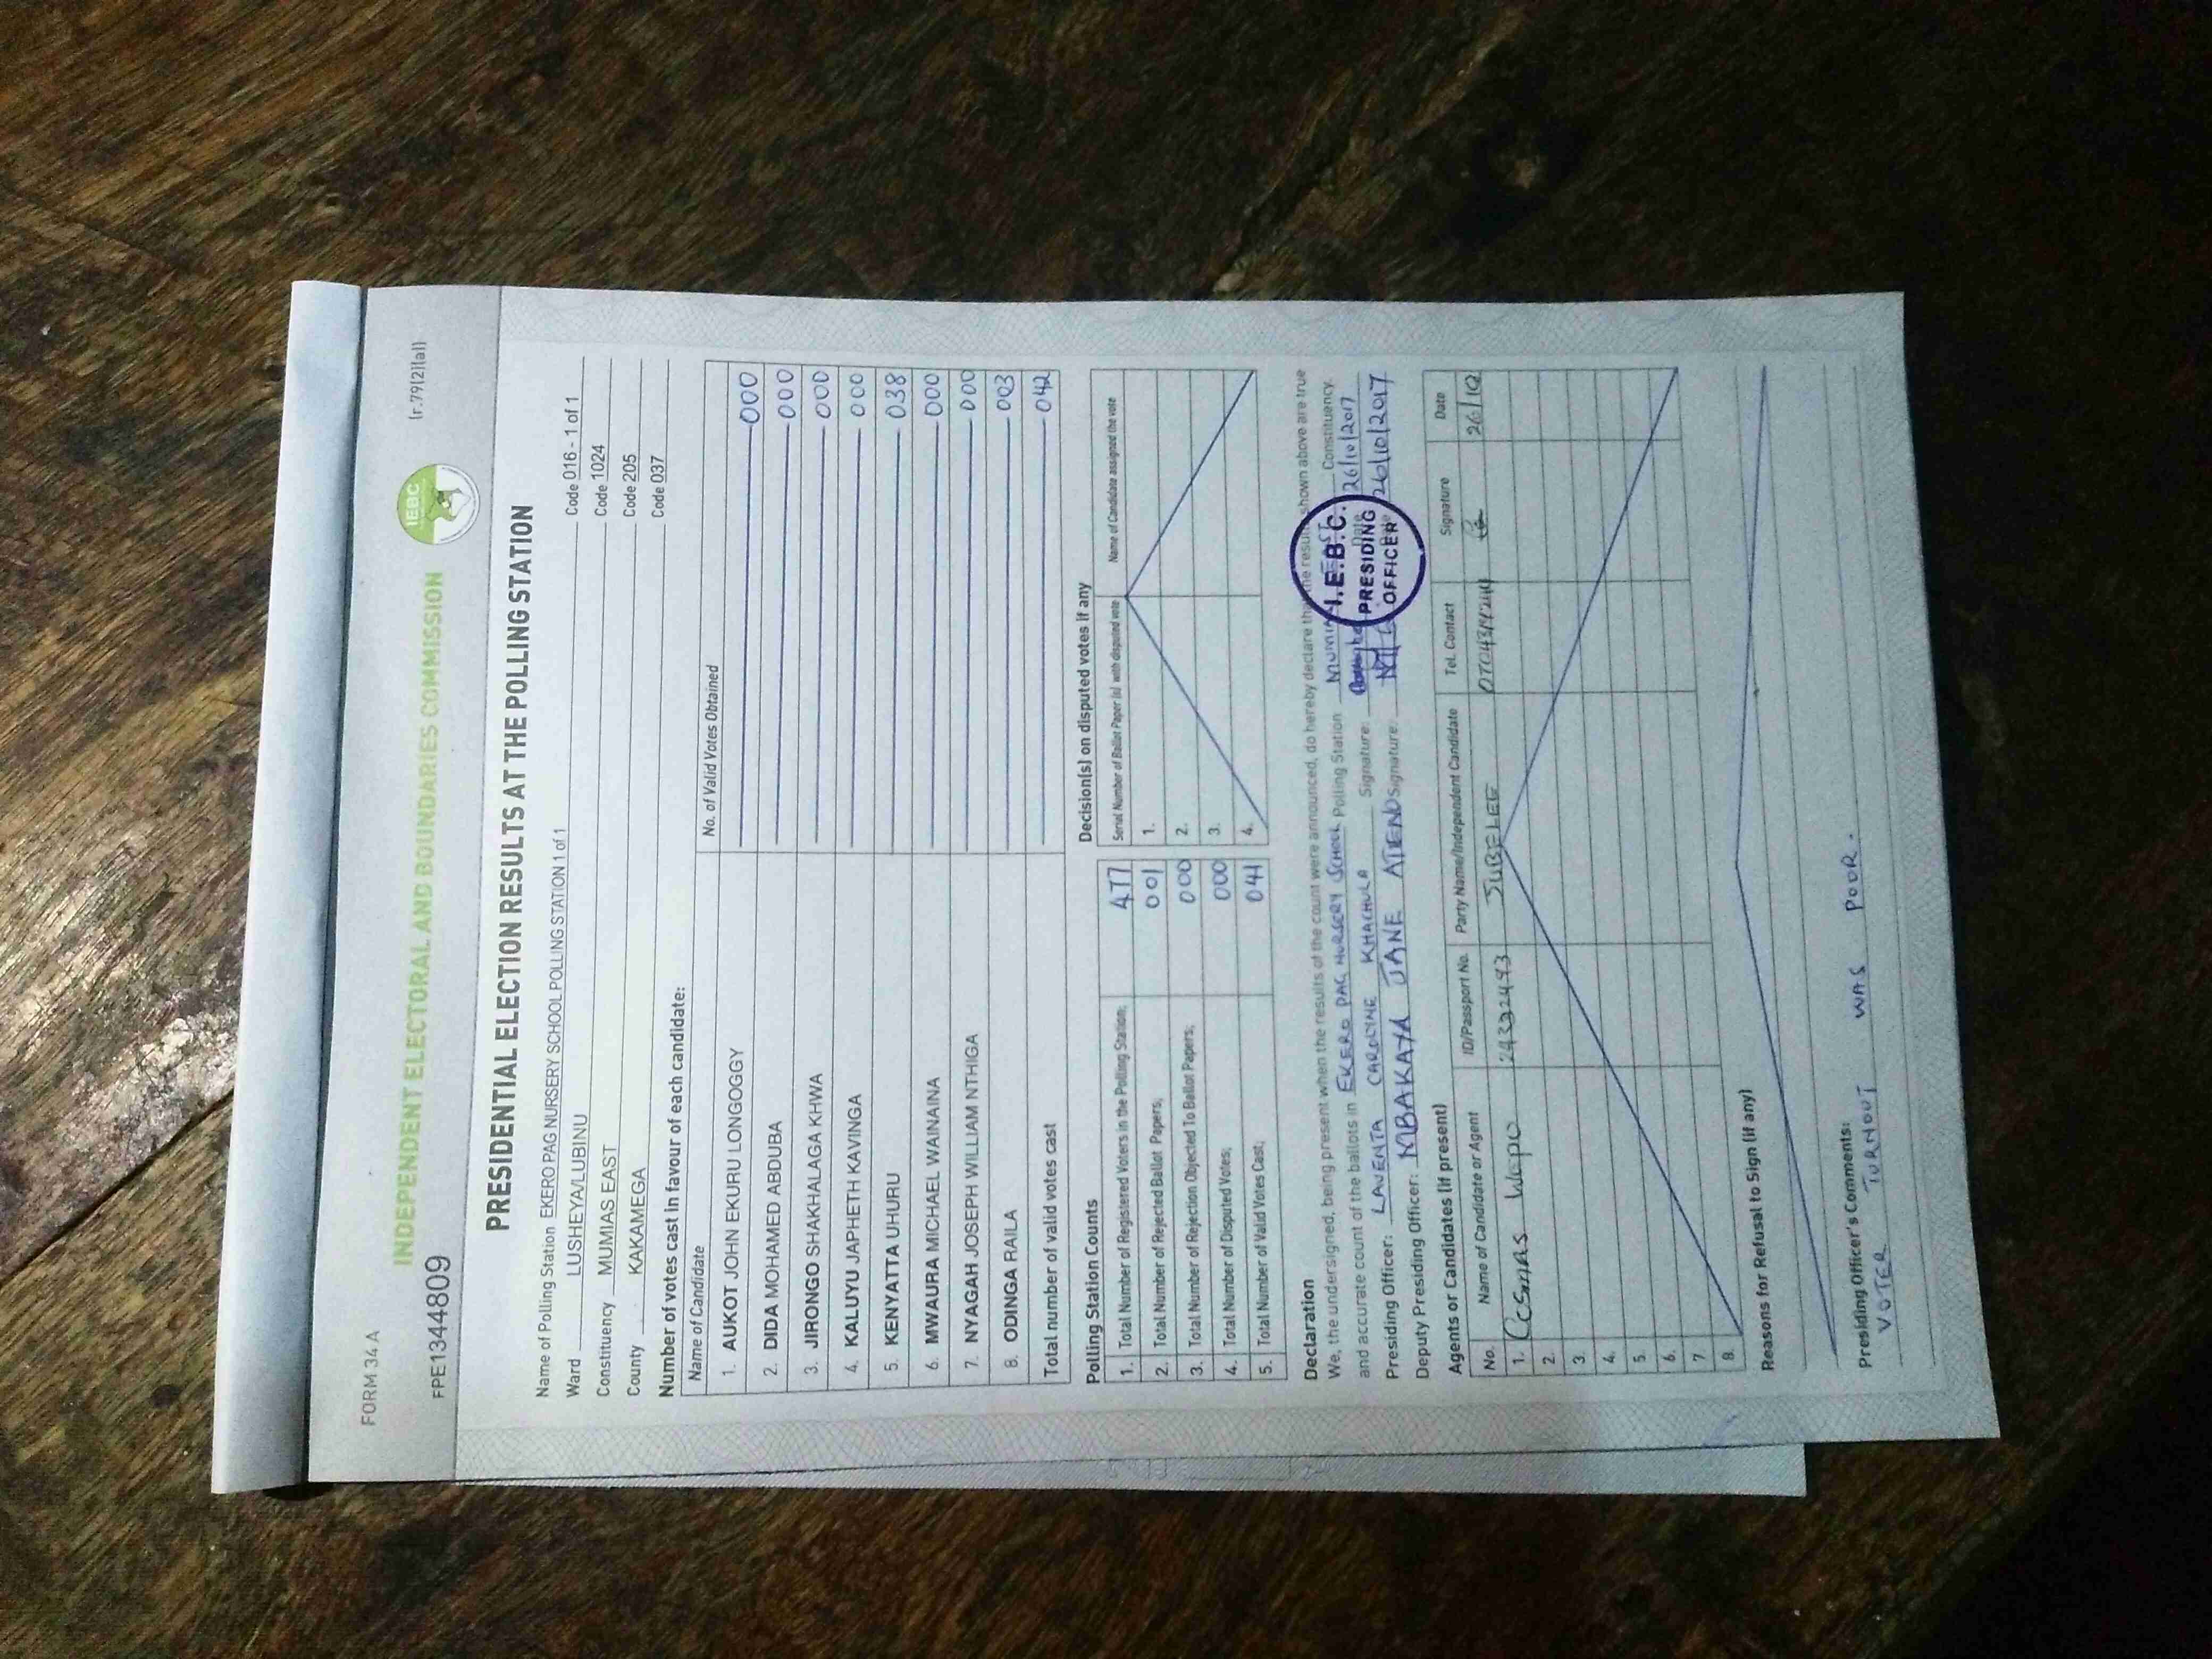 FORM 34 A
(r.79(2)(a))
IEBC
INDEPENDENT ELECTORAL AND BOUNDARIES COMMISSION
FPE1344809
PRESIDENTIAL ELECTION RESULTS AT THE POLLING STATION
Name of Polling Station EKERO PAG NURSERY SCHOOL POLLING STATION 1 of 1 Code 016 - 1 of 1
Ward LUSHEYA/LUBINU Code 1024
Constituency MUMIAS EAST Code 205
County KAKAMEGA Code 037
Number of votes cast in favour of each candidate:
Name of Candidate No. of Valid Votes Obtained
1. AUKOT JOHN EKURU LONGOGGY 000
2. DIDA MOHAMED ABDUBA 000
3. JIRONGO SHAKHALAGA KHWA 000
4. KALUYU JAPHETH KAVINGA 000
5. KENYATTA UHURU 038
6. MWAURA MICHAEL WAINAINA 000
7. NYAGAH JOSEPH WILLIAM NTHIGA 000
8. ODINGA RAILA 003
Total number of valid votes cast 042
Polling Station Counts
1. Total Number of Registered Voters in the Polling Station; 477
2. Total Number of Rejected Ballot Papers; 001
3. Total Number of Rejection Objected To Ballot Papers; 000
4. Total Number of Disputed Votes; 000
5. Total Number of Valid Votes Cast; 041
Decision(s) on disputed votes if any
Serial Number of Ballot Paper (s) with disputed vote Name of Candidate assigned the vote
1.
2.
3.
4.
Declaration
We, the undersigned, being present when the results of the count were announced, do hereby declare that the results shown above are true
and accurate count of the ballots in EKERO PAG NURSERY SCHOOL Polling Station Constituency.
Presiding Officer: LAVENTA CAROLYNE KHACHULA Signature: Date 26/10/2017
Deputy Presiding Officer: MBAKAYA JANE ATIENO Signature: 26/10/2017
I.E.B.C.
PRESIDING
OFFICER
Agents or Candidates (if present)
No. Name of Candidate or Agent ID/Passport No. Party Name/Independent Candidate Tel. Contact Signature Date
1. Cosmas Wapo JUBELEE 26/10
2.
3.
4.
5.
6.
7.
8.
Reasons for Refusal to Sign (if any)
Presiding Officer's Comments:
VOTER TURNOUT WAS POOR.